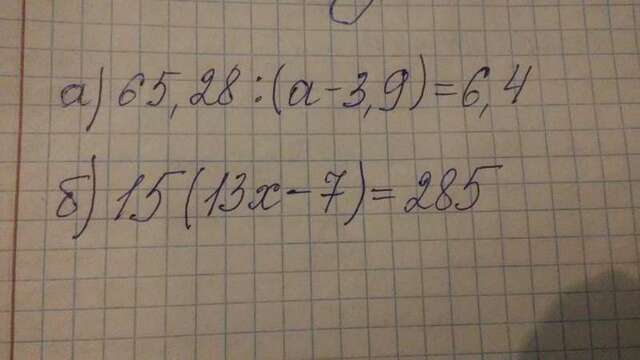 а) 65,28:(а-3,9)=6,4
б) 15(13х-7)=285